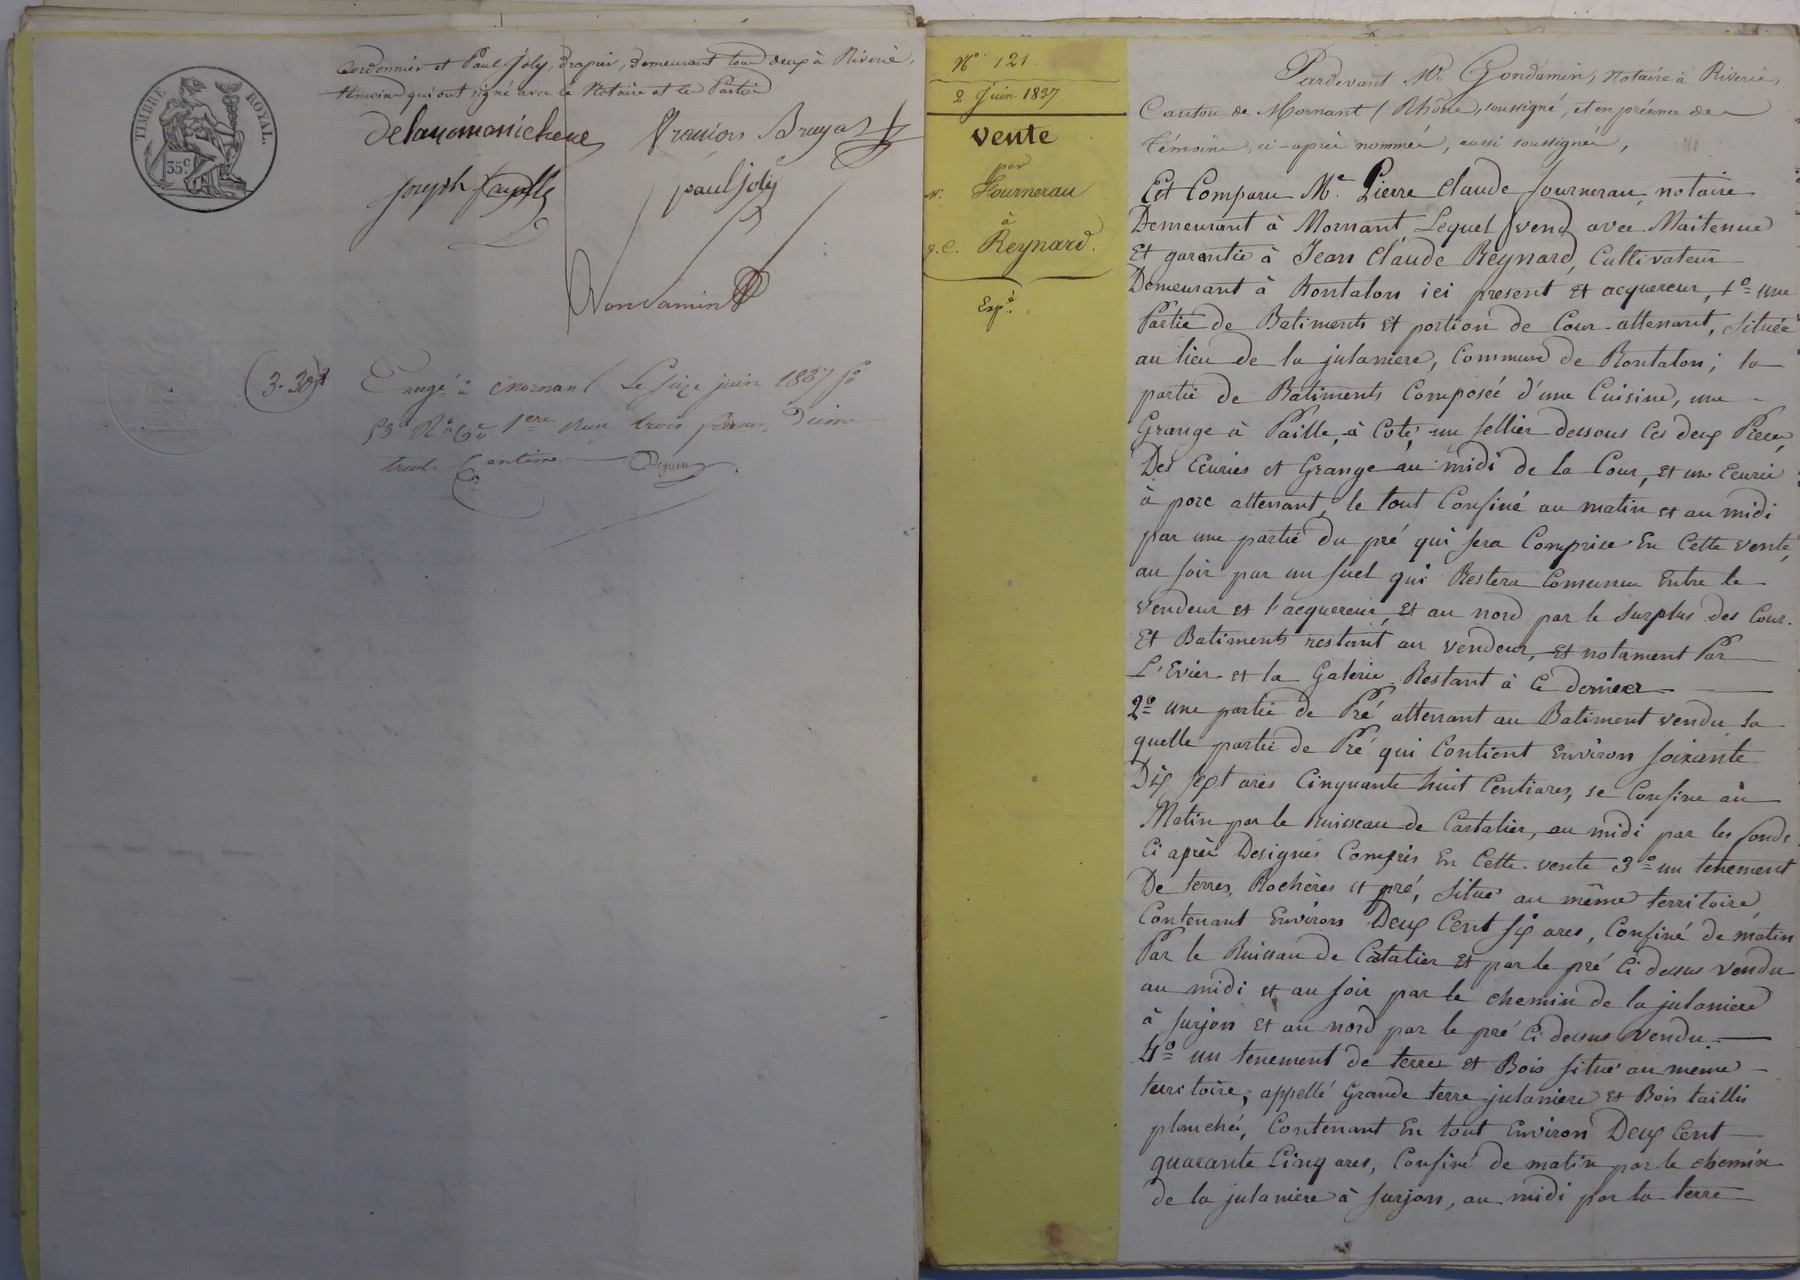 TIMBRE ROYAL.
35 c.
Cordonnier et Paul Joly, drapier, demeurant tous deux à Riverie,
témoins qui ont signé avec le Notaire et les Parties
françois Bruyas
joseph
paul joly
Gondamin
(3.30)
Enregé à Mornant Le Seize juin 1837 fo
53 Ro Reçu trois francs, Dixme
trente Centimes
No 121
2 Juin 1837
Vente
par
Me. Fournerau
à
J. C. Reynard.
Expé.
Pardevant Me Gondamin, Notaire à Riverie,
Canton de Mornant (Rhône) soussigné, et en présence des
témoins, ci-après nommés, aussi soussignés,
Est Comparu Me. Pierre Claude fournerau, notaire
Demeurant à Mornant Lequel vend avec Maitenue
Et garantie à Jean Claude Reynard, Cultivateur
Demeurant à Rontalon ici present et acquereur, 1o= une
Partie de Batiments et portion de Cour attenant, Située
au lieu de la julaniere, Commune de Rontalon; la
partie de Batiments Composée d'une Cuisine, une
Grange à Paille, à Coté, un sellier dessous Ces deux Pieces,
Des Ecuries et Grange au midi de la Cour, et une Ecurie
à porc attenant, le tout Confiné au matin et au midi
par une partie du pré qui sera Comprise En Cette vente,
au soir par un suel qui Restera Comunu Entre le
vendeur et l'acquereur, et au nord par le Surplus des Cour
Et Batiments restant au vendeur, et notament Par
L'Evier et la Galerie Restant à Ce dernier
2o= une partie de Pré attenant au Batiment vendu la
quelle partie de Pré qui Contient Environ soixante
Dix sept ares Cinquante huit Centiares, se Confine au
Matin par le Ruisseau de Cartalier, au midi par les fonds
Ci après Designés Compris En Cette vente 3o= un tenement
De terres, Rochères et pré, Situé au même territoire
Contenant Environ Deux Cent six ares, Confiné de matin
Par le Ruissau de Catatier et par le pré Ci dessus vendu
au midi et au soir par le chemin de la julaniere
à surjon et au nord par le pré Ci dessus vendu
4o= un tenement de terres et Bois situé au meme
territoire, appellé Grande terre julaniere et Bois taillis
planché, Contenant En tout Environ Deux Cent
quarante Cinq ares, Confiné de matin par le chemin
de la julaniere à surjon, au midi par la terre